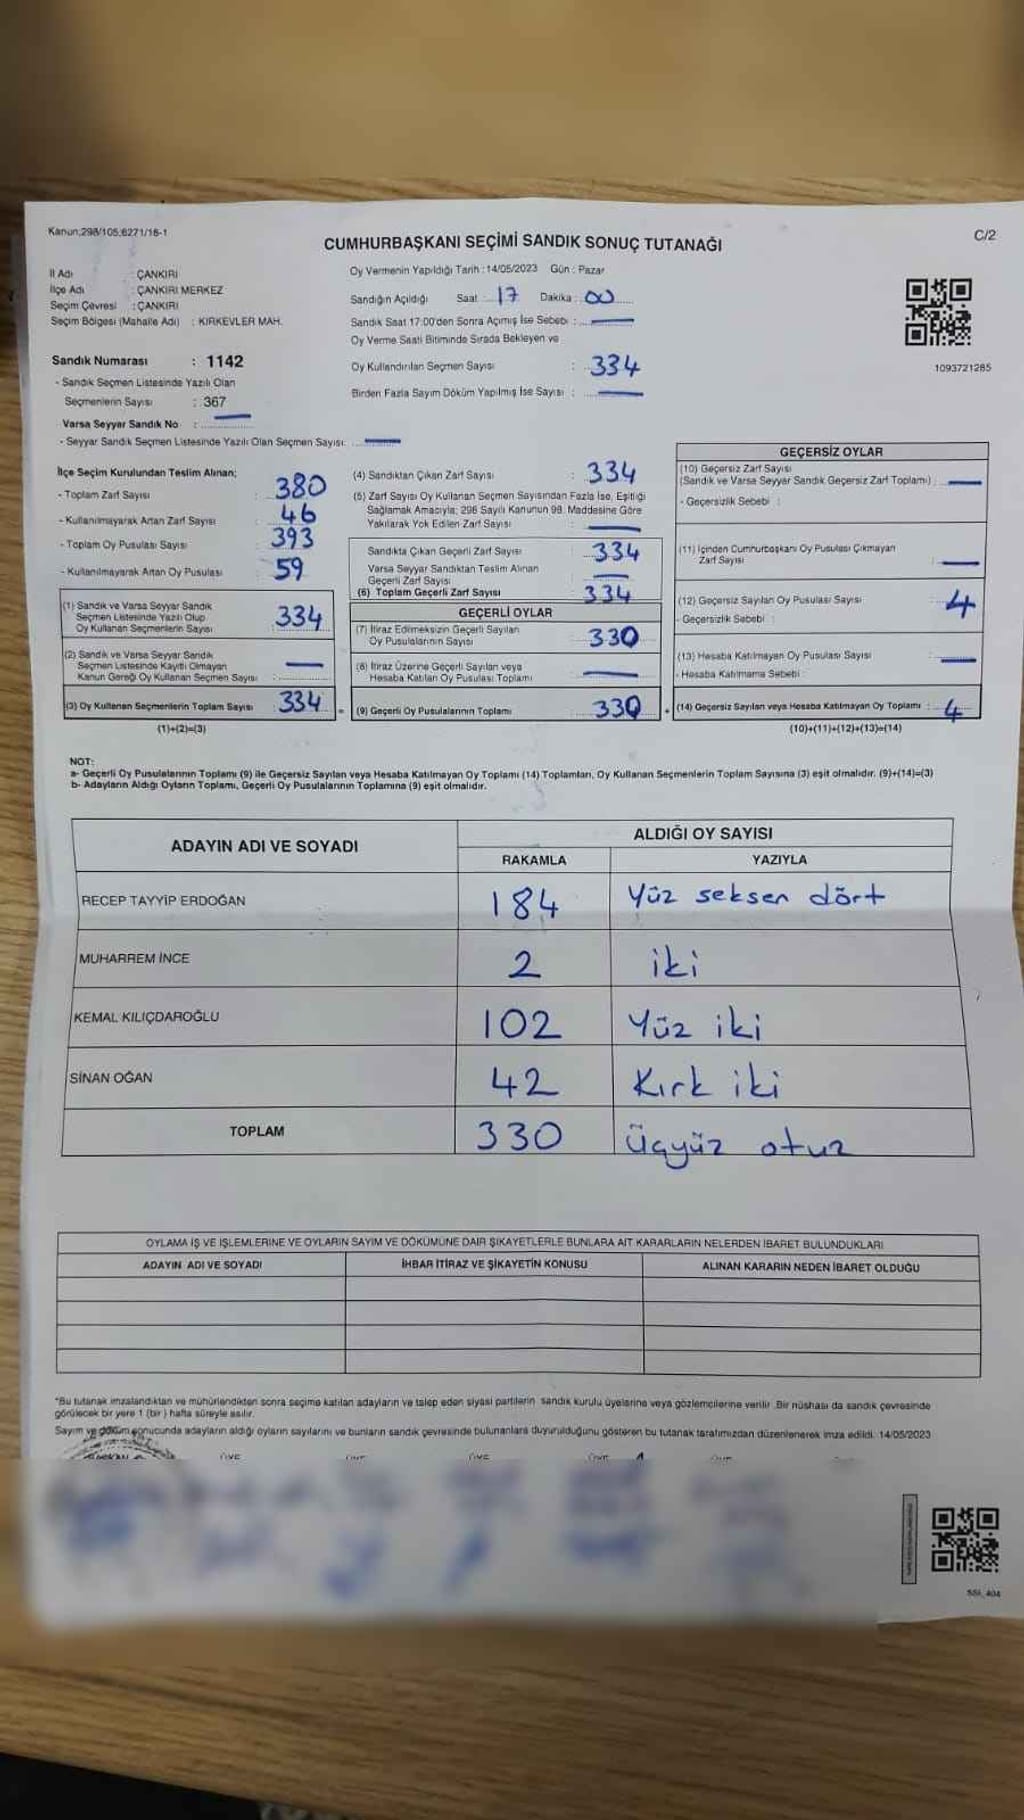 Kanun;298/105,6271/18-1
CUMHURBAŞKANI SEÇİMİ SANDIK SONUÇ TUTANAĞI
C/2
İl Adı : ÇANKIRI
İlçe Adı : ÇANKIRI MERKEZ
Seçim Çevresi : ÇANKIRI
Seçim Bölgesi (Mahalle Adı) : KIRKEVLER MAH.
Oy Vermenin Yapıldığı Tarih : 14/05/2023 Gün : Pazar
Sandığın Açıldığı Saat 17 Dakika : 00
Sandık Saat 17:00'den Sonra Açımış İse Sebebi : —
Oy Verme Saati Bitiminde Sırada Bekleyen ve
Oy Kullandırılan Seçmen Sayısı : 334
Birden Fazla Sayım Döküm Yapılmış İse Sayısı : —
1093721285
Sandık Numarası : 1142
- Sandık Seçmen Listesinde Yazılı Olan
Seçmenlerin Sayısı : 367
Varsa Seyyar Sandık No : —
- Seyyar Sandık Seçmen Listesinde Yazılı Olan Seçmen Sayısı: —
İlçe Seçim Kurulundan Teslim Alınan;
- Toplam Zarf Sayısı : 380
- Kullanılmayarak Artan Zarf Sayısı : 46
- Toplam Oy Pusulası Sayısı : 393
- Kullanılmayarak Artan Oy Pusulası : 59
(1) Sandık ve Varsa Seyyar Sandık
Seçmen Listesinde Yazılı Olup
Oy Kullanan Seçmenlerin Sayısı : 334
(2) Sandık ve Varsa Seyyar Sandık
Seçmen Listesinde Kayıtlı Olmayan
Kanun Gereği Oy Kullanan Seçmen Sayısı : —
(3) Oy Kullanan Seçmenlerin Toplam Sayısı : 334
(1)+(2)=(3)
(4) Sandıktan Çıkan Zarf Sayısı : 334
(5) Zarf Sayısı Oy Kullanan Seçmen Sayısından Fazla İse, Eşitliği
Sağlamak Amacıyla; 298 Sayılı Kanunun 98. Maddesine Göre
Yakılarak Yok Edilen Zarf Sayısı : —
Sandıkta Çıkan Geçerli Zarf Sayısı : 334
Varsa Seyyar Sandıktan Teslim Alınan
Geçerli Zarf Sayısı : —
(6) Toplam Geçerli Zarf Sayısı : 334
GEÇERLİ OYLAR
(7) İtiraz Edilmeksizin Geçerli Sayılan
Oy Pusulalarının Sayısı : 330
(8) İtiraz Üzerine Geçerli Sayılan veya
Hesaba Katılan Oy Pusulası Toplamı : —
= (9) Geçerli Oy Pusulalarının Toplamı : 330
GEÇERSİZ OYLAR
(10) Geçersiz Zarf Sayısı
(Sandık ve Varsa Seyyar Sandık Geçersiz Zarf Toplamı) : —
- Geçersizlik Sebebi :
(11) İçinden Cumhurbaşkanı Oy Pusulası Çıkmayan
Zarf Sayısı : —
(12) Geçersiz Sayılan Oy Pusulası Sayısı : 4
- Geçersizlik Sebebi :
(13) Hesaba Katılmayan Oy Pusulası Sayısı : —
- Hesaba Katılmama Sebebi :
+ (14) Geçersiz Sayılan veya Hesaba Katılmayan Oy Toplamı : 4
(10)+(11)+(12)+(13)=(14)
NOT:
a- Geçerli Oy Pusulalarının Toplamı (9) ile Geçersiz Sayılan veya Hesaba Katılmayan Oy Toplamı (14) Toplamları, Oy Kullanan Seçmenlerin Toplam Sayısına (3) eşit olmalıdır. (9)+(14)=(3)
b- Adayların Aldığı Oyların Toplamı, Geçerli Oy Pusulalarının Toplamına (9) eşit olmalıdır.
ADAYIN ADI VE SOYADI
ALDIĞI OY SAYISI
RAKAMLA YAZIYLA
RECEP TAYYİP ERDOĞAN 184 Yüz seksen dört
MUHARREM İNCE 2 iki
KEMAL KILIÇDAROĞLU 102 Yüz iki
SİNAN OĞAN 42 Kırk iki
TOPLAM 330 Üçyüz otuz
OYLAMA İŞ VE İŞLEMLERİNE VE OYLARIN SAYIM VE DÖKÜMÜNE DAİR ŞİKAYETLERLE BUNLARA AİT KARARLARIN NELERDEN İBARET BULUNDUKLARI
ADAYIN ADI VE SOYADI İHBAR İTİRAZ VE ŞİKAYETİN KONUSU ALINAN KARARIN NEDEN İBARET OLDUĞU
*Bu tutanak imzalandıktan ve mühürlendikten sonra seçime katılan adayların ve talep eden siyasi partilerin sandık kurulu üyelerine veya gözlemcilerine verilir. Bir nüshası da sandık çevresinde
görülecek bir yere 1 (bir) hafta süreyle asılır.
Sayım ve döküm sonucunda adayların aldığı oyların sayılarını ve bunların sandık çevresinde bulunanlara duyurulduğunu gösteren bu tutanak tarafımızdan düzenlenerek imza edildi. 14/05/2023